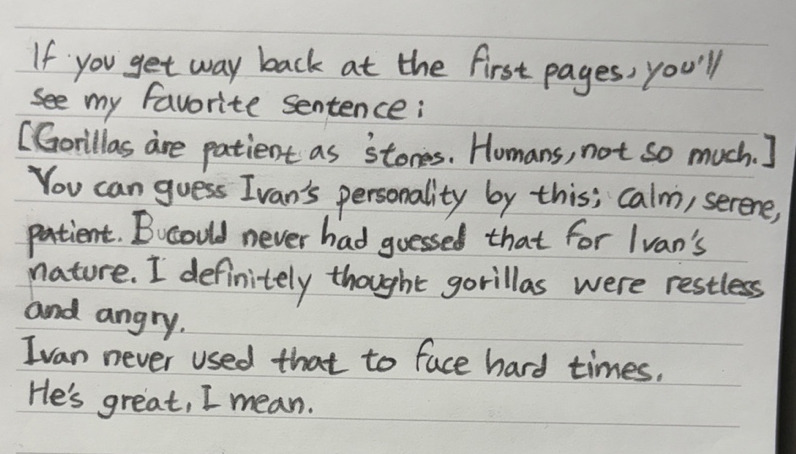 If you get way back at the first pages, you'll
see my favorite sentence:
[Gorillas are patient as stones. Humans, not so much.]
You can guess Ivan's personality by this; calm, serene,
patient. could never had guessed that for Ivan's
nature. I definitely thought gorillas were restless
and angry.
Ivan never used that to face hard times.
He's great, I mean.